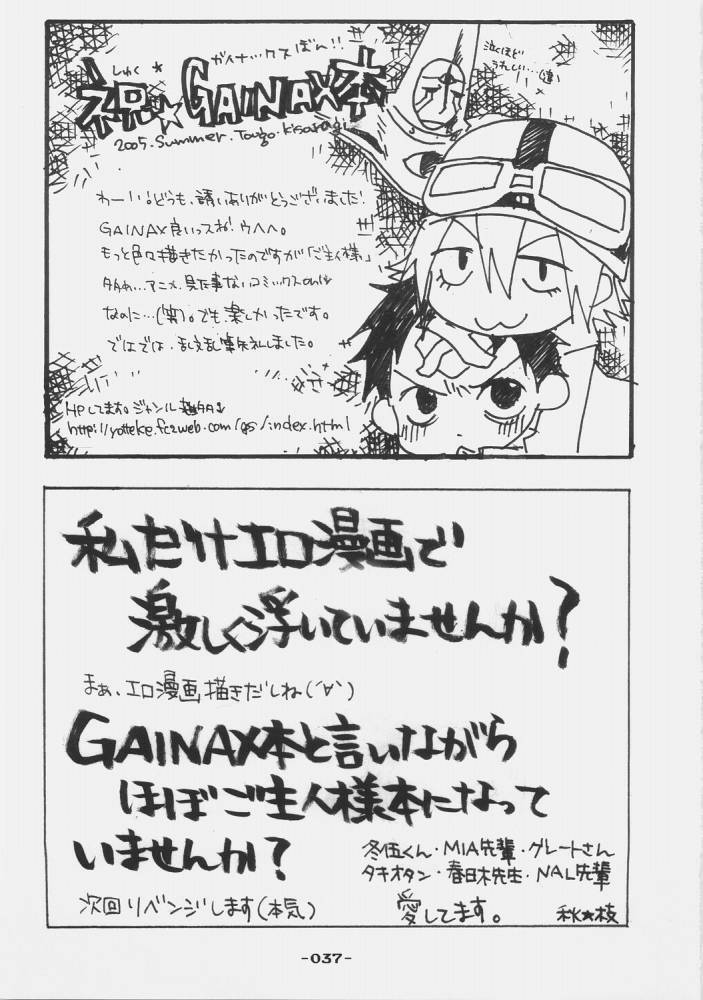 しゅく★ガイナックスぼん!!
祝☆GAINAX本
2005.Summer.Tougo.Kisaragi
泣くほど
うれしい…
わーい!どうも、誘いありがとうございました!
GAINAX良いっスね!ウヘヘ。
もっと色々描きたかったのですが「ご主人様」
アニメ見た事ないコミックスonly
なのに…(笑)。でも楽しかったです。
ではでは、乱文乱筆失礼しました。
HPしてます。ジャンル
http://yotteke.fc2web.com/gs/index.html
私だけエロ漫画で
激しく浮いていませんか?
まぁ、エロ漫画描きだしね(´∀`)
GAINAX本と言いながら
ほぼご主人様本になって
いませんか?
冬伍くん・MIA先輩・グレートさん
タキオタン・春日木先生・NAL先輩
次回リベンジします(本気)
愛してます。
秋★枝
-037-